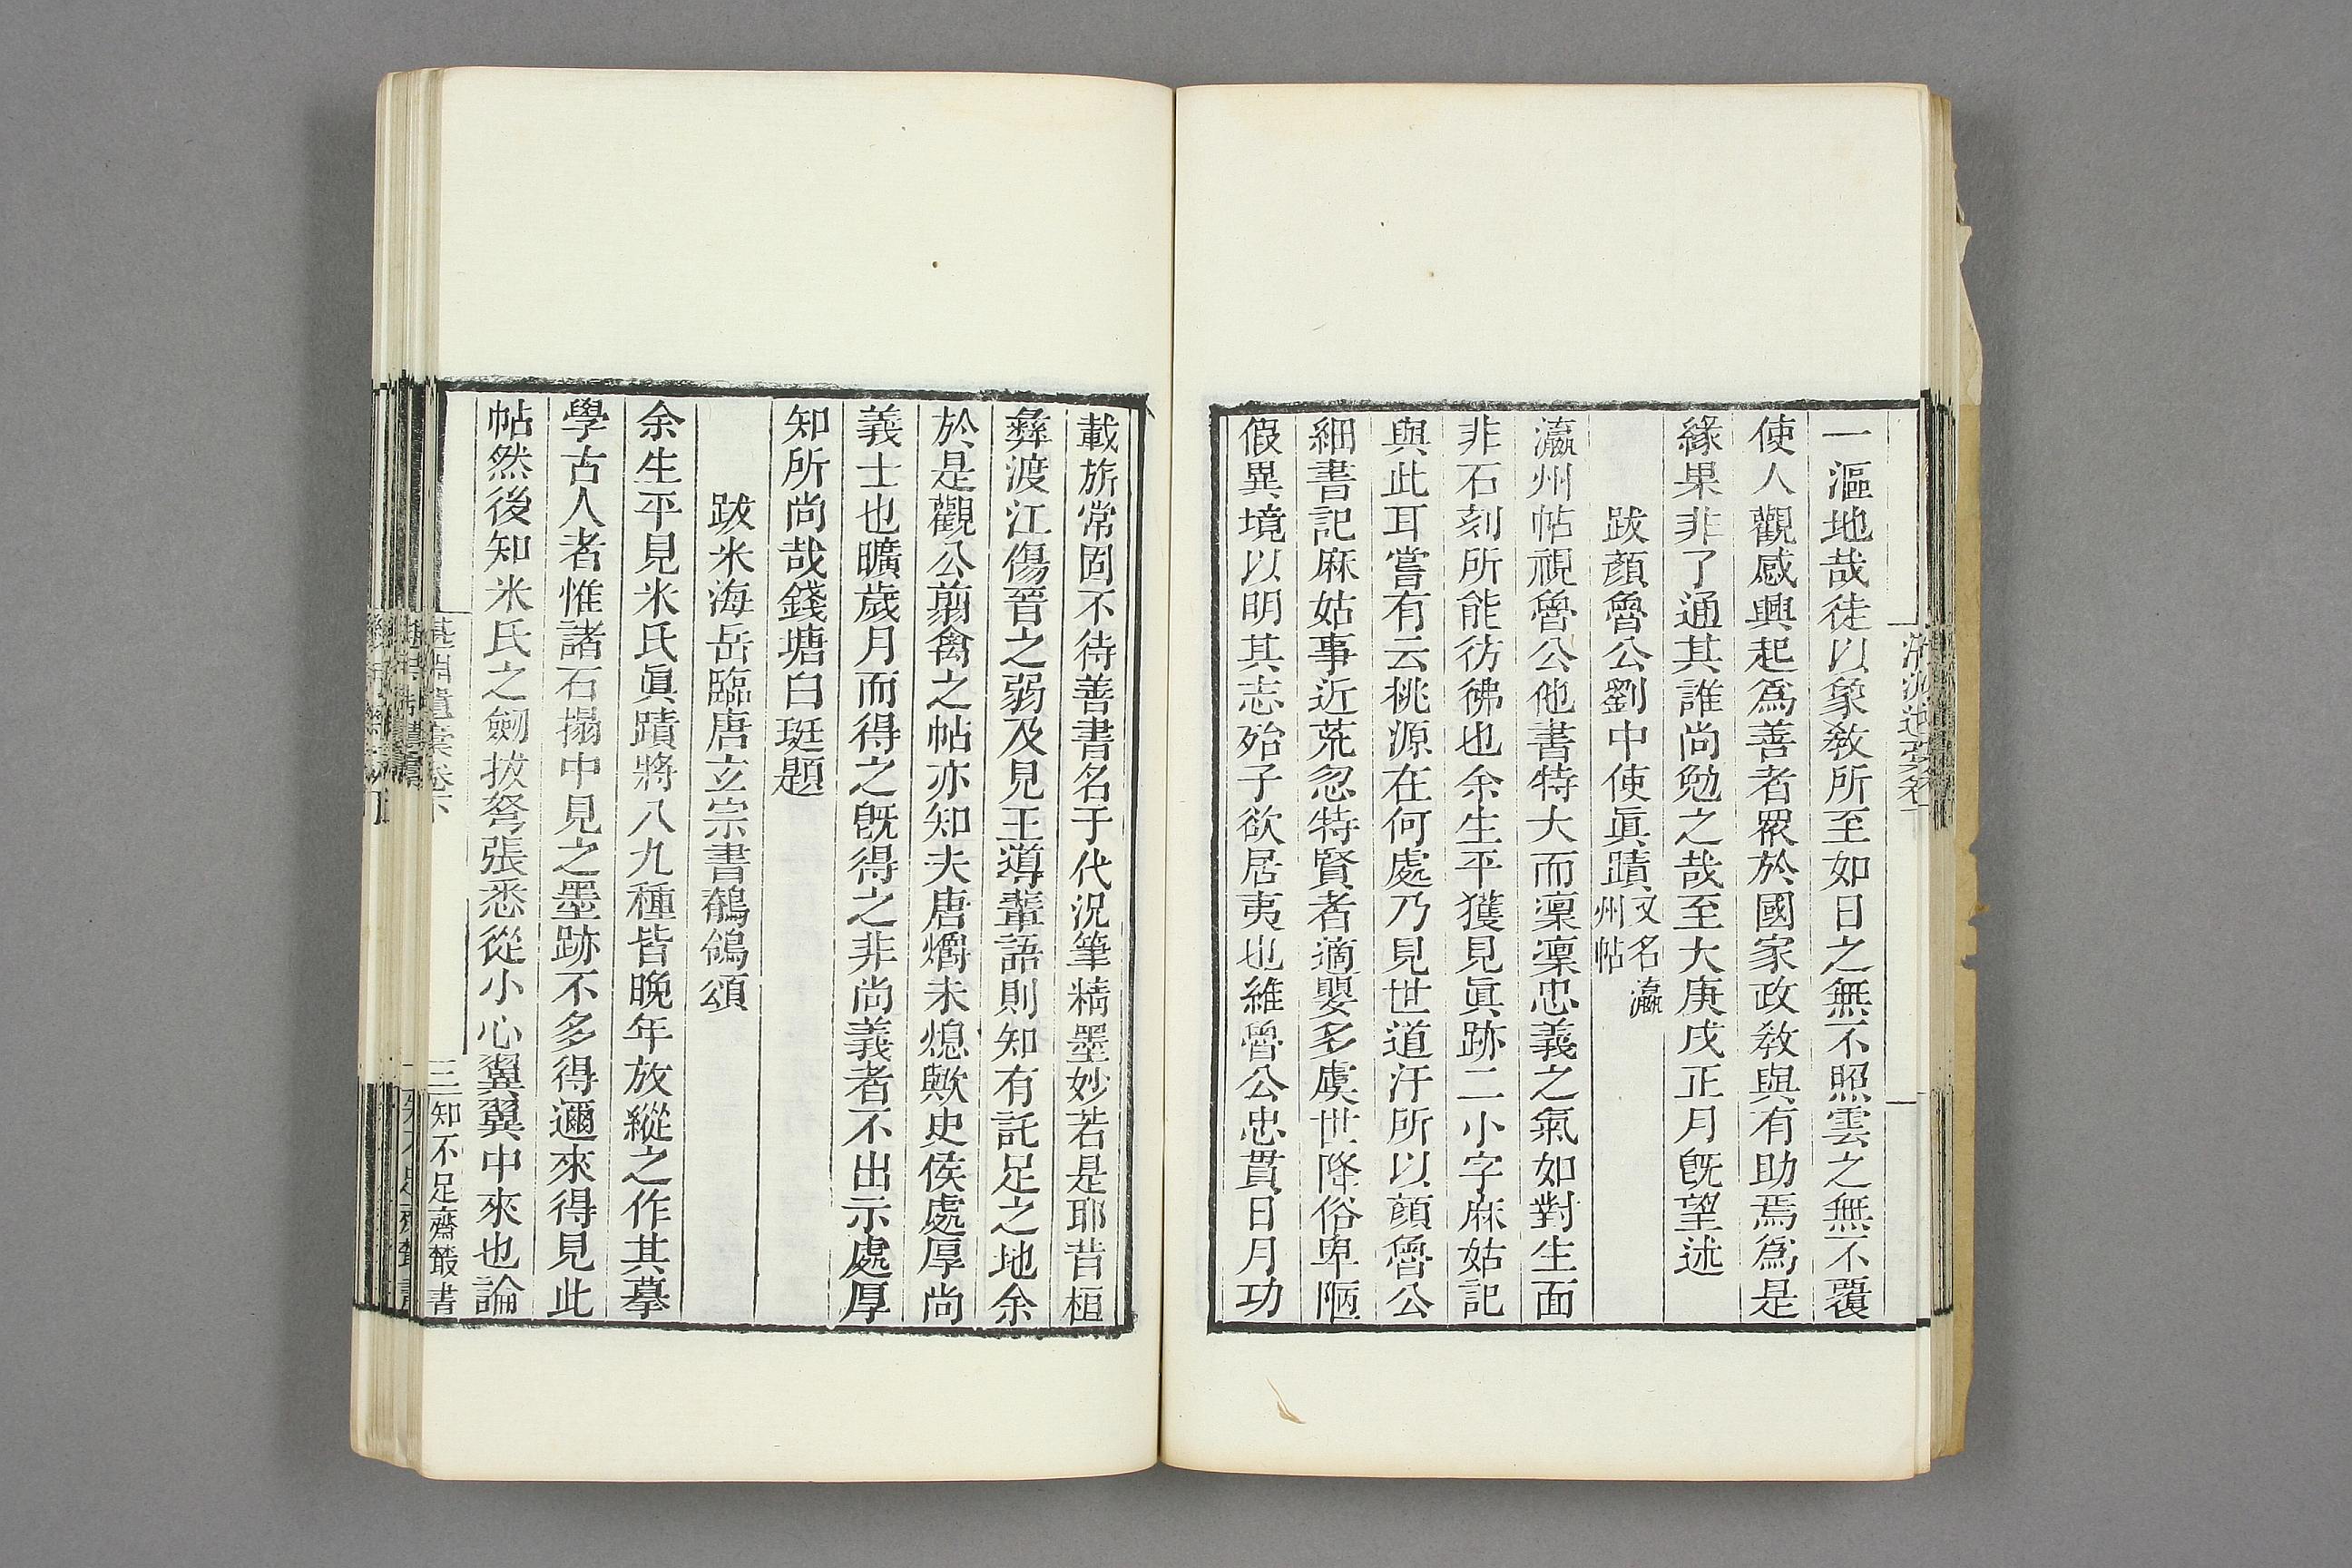 一漚地哉徒以象敎所至如日之無不照雲之無不覆
使人觀感興起爲善者眾於國家政敎與有助焉爲是
緣果非了通其誰尚勉之哉至大庚戌正月旣望述
跋顏魯公劉中使眞蹟又名瀛州帖
瀛州帖視魯公他書特大而凜凜忠義之氣如對生面
非石刻所能彷彿也余生平獲見眞跡二小字麻姑記
與此耳嘗有云桃源在何處乃見世道汙所以顏魯公
細書記麻姑事近荒忽特賢者適嬰多虞世降俗卑陋
假異境以明其志殆子欲居夷也維魯公忠貫日月功
載旂常固不待善書名于代況筆精墨妙若是耶昔桓
彝渡江傷晉之弱及見王導輩語則知有託足之地余
於是觀公翦禽之帖亦知夫唐爝未熄歟史侯處厚尚
義士也曠歲月而得之旣得之非尚義者不出示處厚
知所尚哉錢塘白珽題
跋米海岳臨唐玄宗書鶺鴒頌
余生平見米氏眞蹟將八九種皆晚年放縱之作其摹
學古人者惟諸石搨中見之墨跡不多得邇來得見此
帖然後知米氏之劒拔弩張悉從小心翼翼中來也論
湛淵遺槀卷下
三
知不足齋叢書